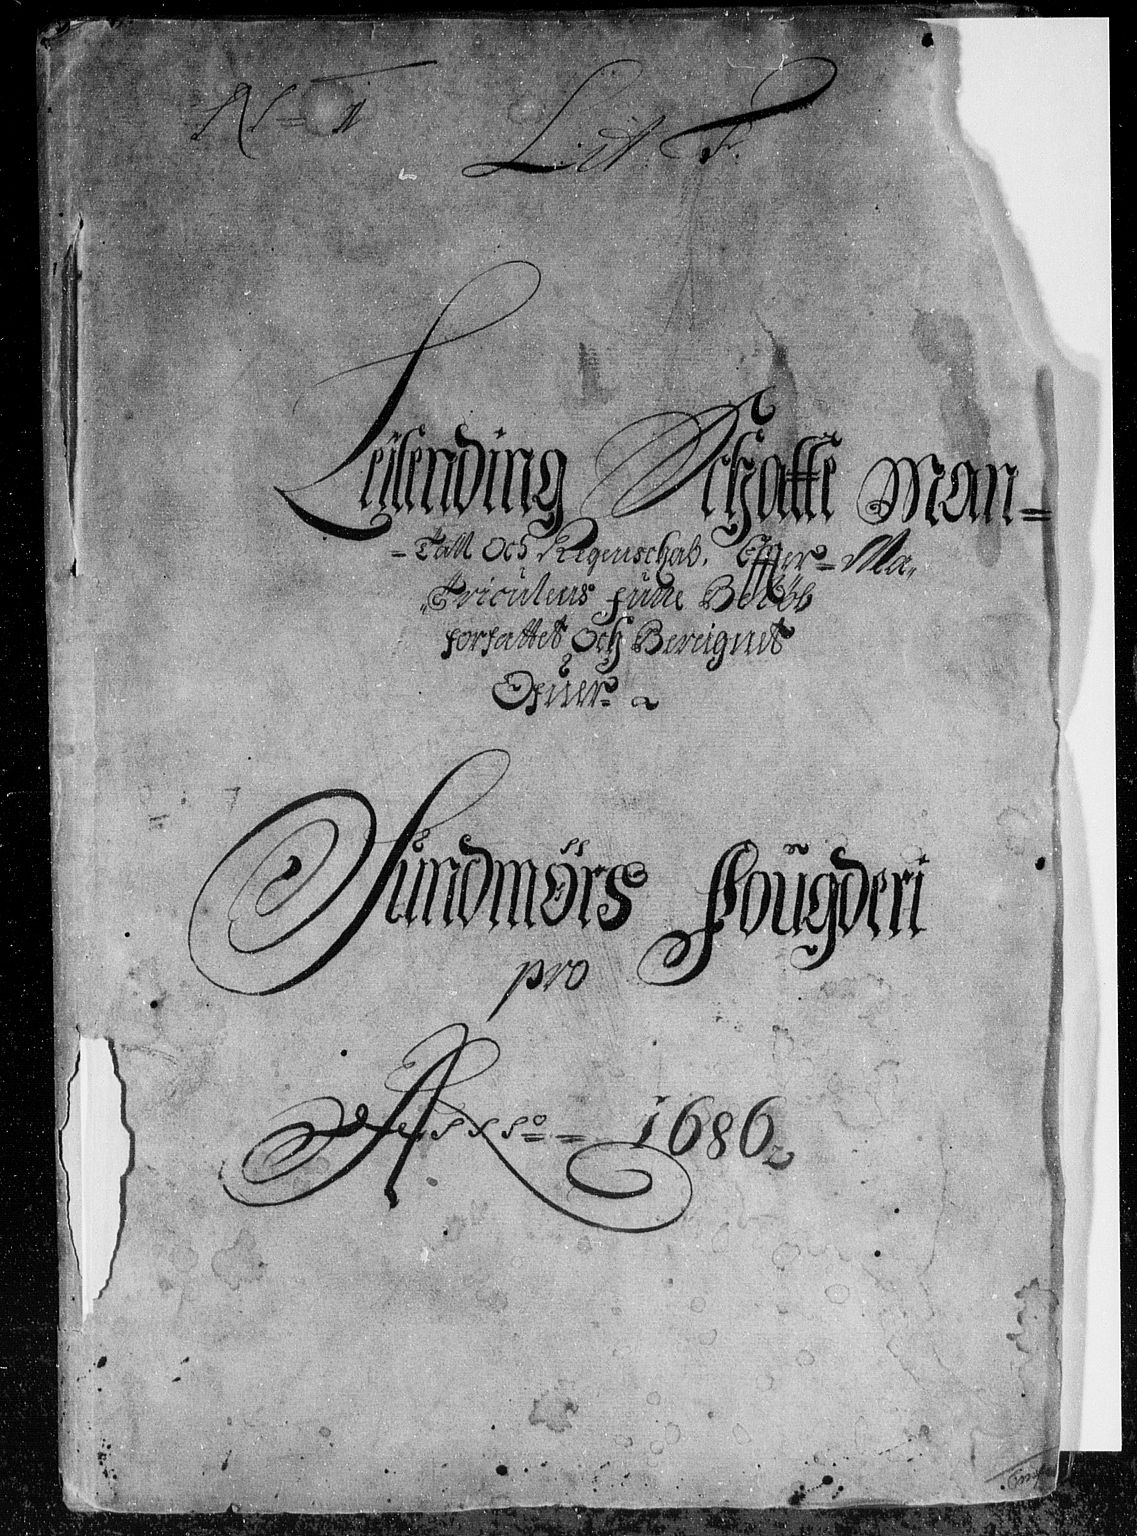 Lit F.
Leilending Schatte Man=
=Tall Och Regenschab, Effter= Ma,,
,,Triculens fulle Beløb
forfattet Och Bereignet
Ofuer
Sundmørs Fougderi
pro
Anno = 1686